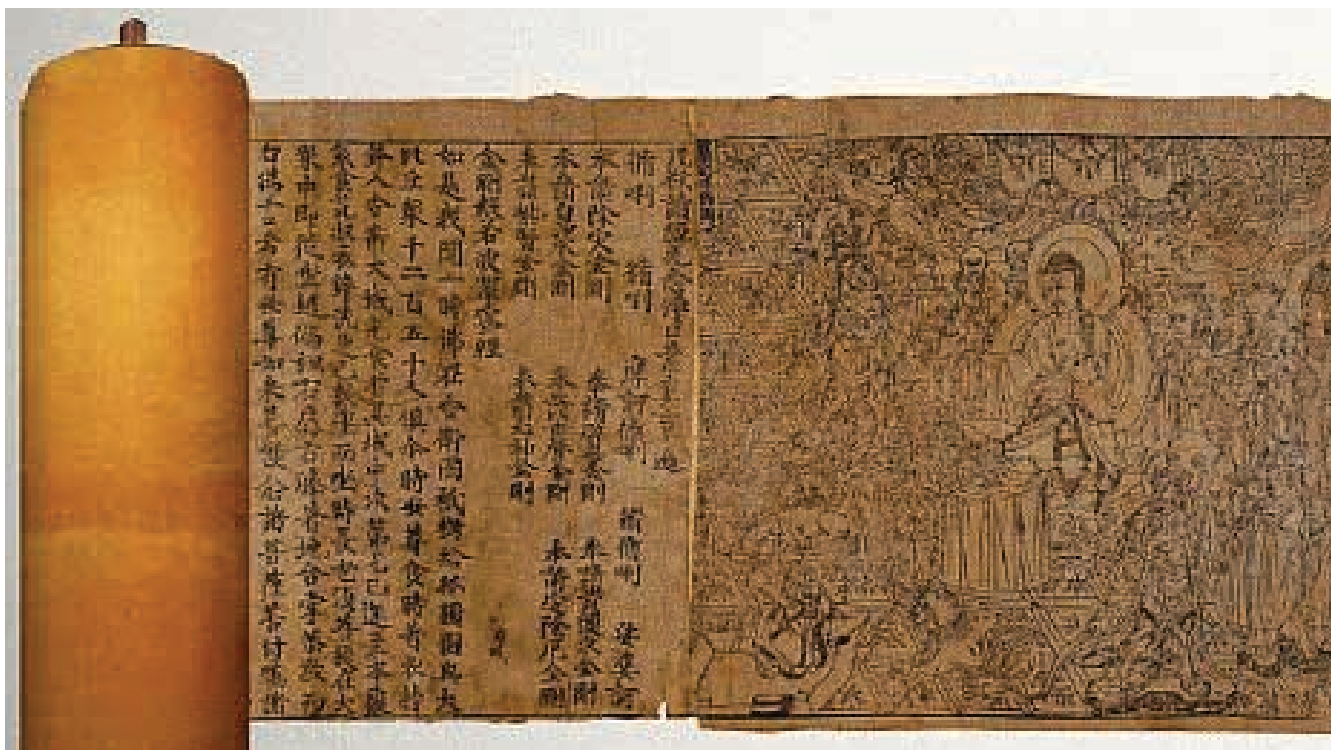 脩唎 脩唎 摩訶脩唎 脩脩唎 娑婆訶
奉請除灾金剛 奉請辟毒金剛 奉請黃隨求金剛
奉請白淨水金剛 奉請赤聲金剛 奉請定除厄金剛
奉請紫賢金剛 奉請大神金剛
金剛般若波羅蜜經
如是我聞一時佛在舍衛國祇樹給孤獨園與大
比丘眾千二百五十人俱尒時世尊食時著衣持
鉢入舍衛大城乞食於其城中次第乞已還至本處
飯食訖收衣鉢洗足已敷座而坐時長老須菩提在大
眾中即從座起偏袒右肩右膝著地合掌恭敬而
白佛言希有世尊如來善護念諸菩薩善付囑諸